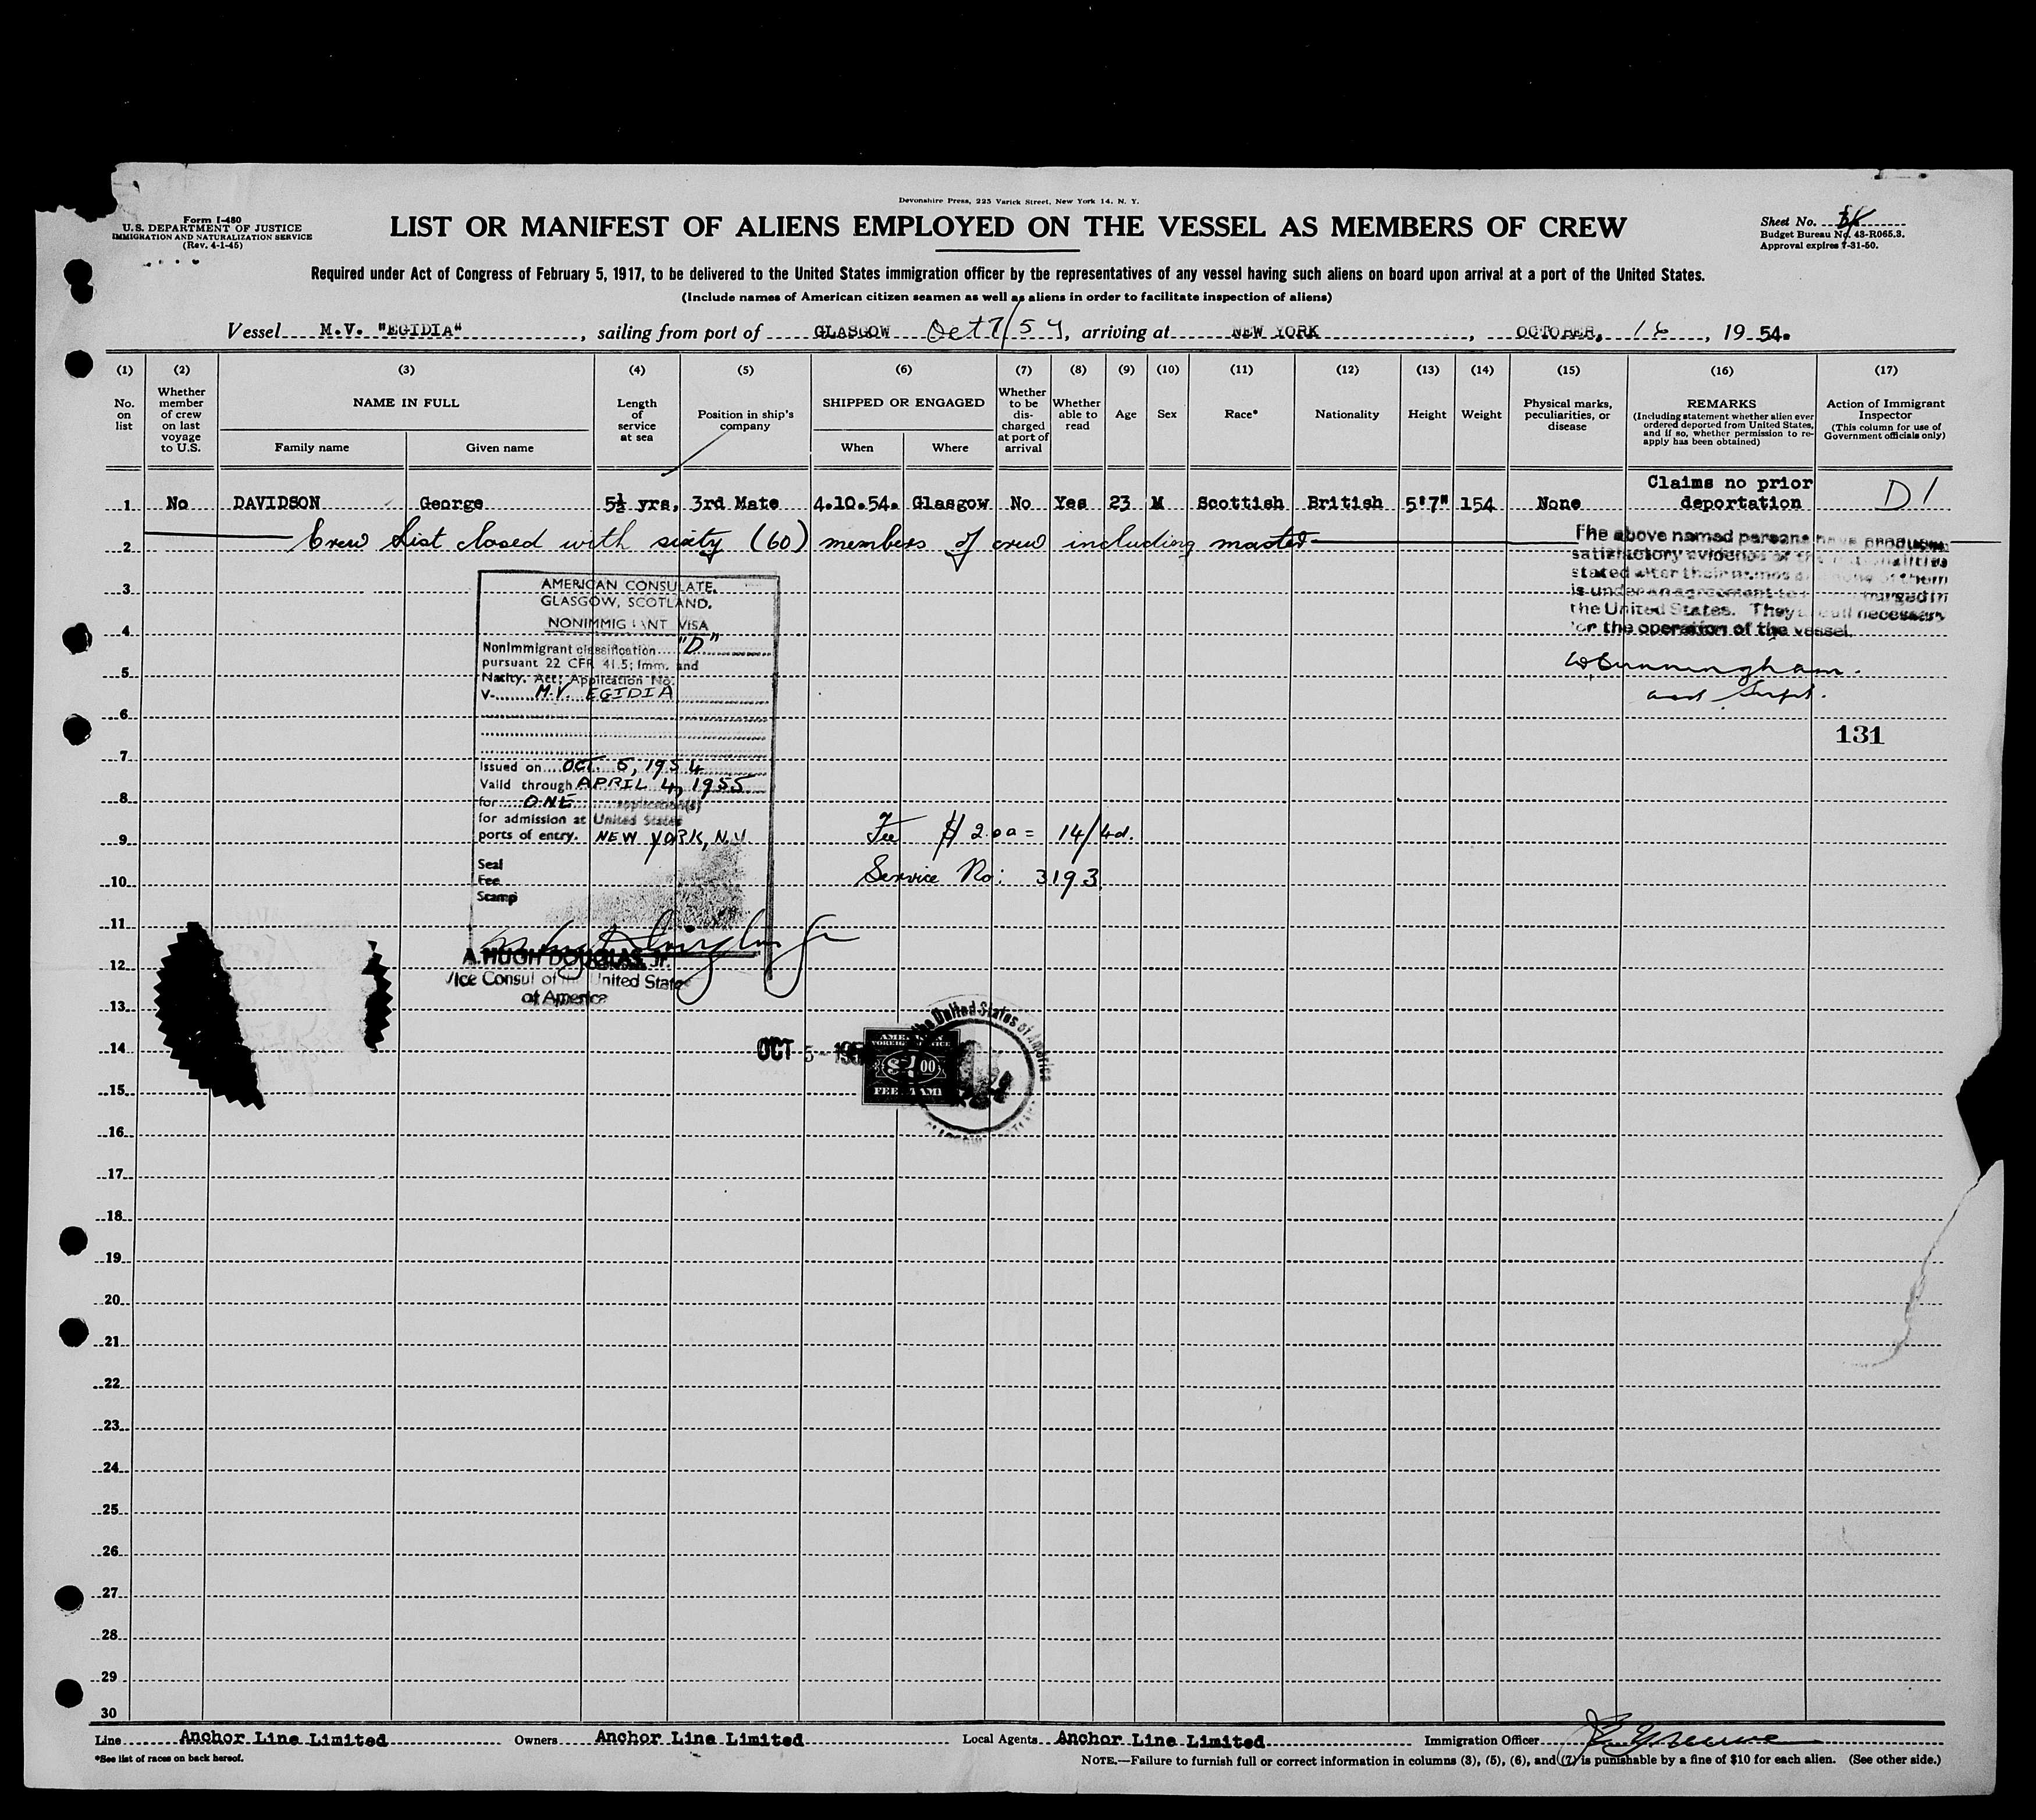 Devonshire Press, 225 Varick Street, New York 14, N. Y.
Form I-480
U.S. DEPARTMENT OF JUSTICE
IMMIGRATION AND NATURALIZATION SERVICE
(Rev. 4-1-45)
LIST OR MANIFEST OF ALIENS EMPLOYED ON THE VESSEL AS MEMBERS OF CREW
Sheet No.
Budget Bureau No. 43-R065.3.
Approval expires 7-31-50.
Required under Act of Congress of February 5, 1917, to be delivered to the United States immigration officer by the representatives of any vessel having such aliens on board upon arrival at a port of the United States.
(Include names of American citizen seamen as well as aliens in order to facilitate inspection of aliens)
Vessel M.V. "EGIDIA", sailing from port of GLASGOW Oct 7/54, arriving at NEW YORK, OCTOBER, 16, 1954.
(1) (2) (3) (4) (5) (6) (7) (8) (9) (10) (11) (12) (13) (14) (15) (16) (17)
No. on list
Whether member of crew on last voyage to U.S.
NAME IN FULL
Family name Given name
Length of service at sea
Position in ship's company
SHIPPED OR ENGAGED
When Where
Whether to be discharged at port of arrival
Whether able to read
Age
Sex
Race*
Nationality
Height
Weight
Physical marks, peculiarities, or disease
REMARKS
(Including statement whether alien ever ordered deported from United States, and if so, whether permission to re-apply has been obtained)
Action of Immigrant Inspector
(This column for use of Government officials only)
1 No DAVIDSON George 5½ yrs, 3rd Mate 4.10.54. Glasgow No Yes 23 M Scottish British 5'7" 154 None Claims no prior deportation D1
2 Crew list closed with sixty (60) members of crew including master
The above named persons have produced
satisfactory evidence of the nationalities
stated after their names and none of them
is under an agreement to
the United States. They are all necessary
for the operation of the vessel.
W Cunningham.
asst Supt.
131
3
4
5
6
7
8
9
10
11
12
13
14
15
16
17
18
19
20
21
22
23
24
25
26
27
28
29
30
AMERICAN CONSULATE.
GLASGOW, SCOTLAND.
NONIMMIGRANT VISA
Nonimmigrant classification "D"
pursuant 22 CFR 41.5; Imm. and
Natlty. Act; Application No.
V- M.V. EGIDIA
Issued on OCT. 5, 1954
Valid through APRIL 4, 1955
for ONE application(s)
for admission at United States
ports of entry. NEW YORK, N.Y.
Seal
Fee
Stamp
A. HUGH DOUGLAS Jr.
Vice Consul of the United States
of America
Fee $2.00 = 14/4d.
Service No: 3193
OCT 5 - 195
AMERICAN
FOREIGN SERVICE
$2.00
FEE STAMP
the United States of America
Line Anchor Line Limited Owners Anchor Line Limited Local Agents Anchor Line Limited Immigration Officer
*See list of races on back hereof.
NOTE.—Failure to furnish full or correct information in columns (3), (5), (6), and (7) is punishable by a fine of $10 for each alien. (See other side.)